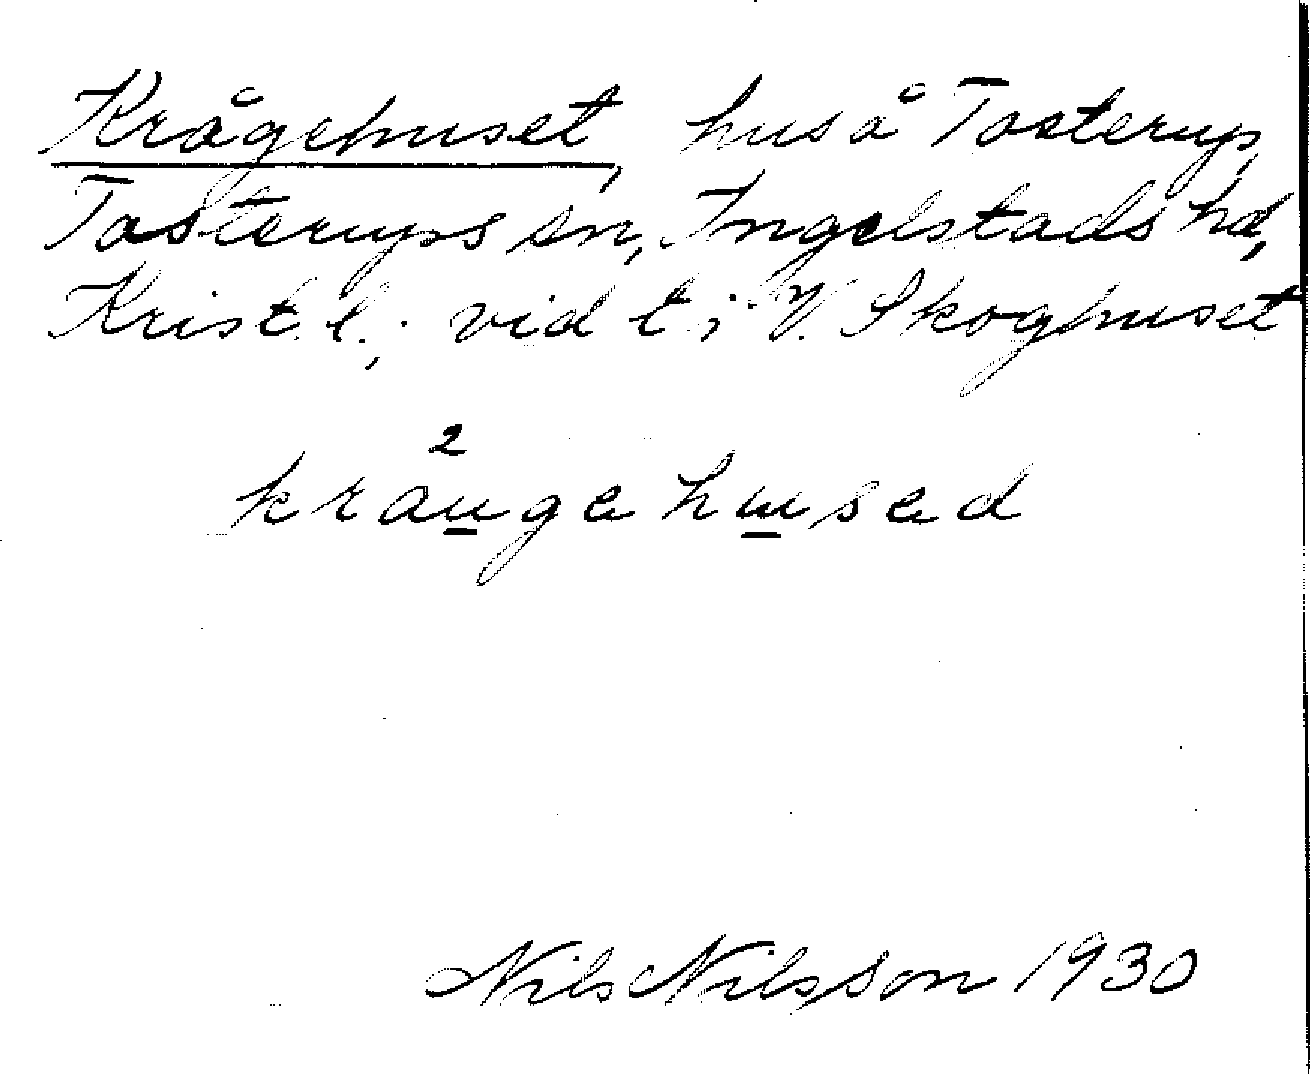 Krågehuset, hus å Tosterup,
Tosterups sn, Ingelstads hd,
Krist. l.; vid t i V. Skoghuset
2
kräugehused
Nils Nilsson 1930